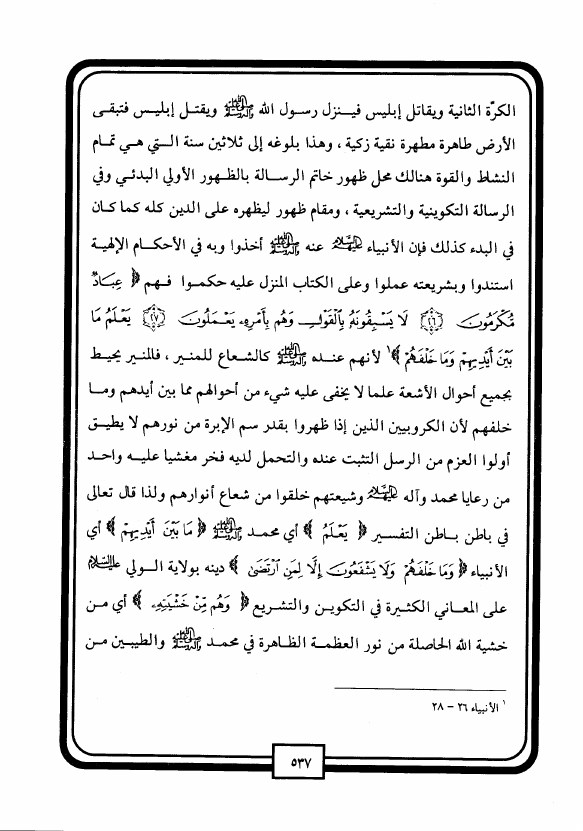 الكرّة الثانية ويقاتل إبليس فينزل رسول الله ﷺ ويقتل إبليس فتبقى
الأرض طاهرة مطهرة نقية زكية ، وهذا بلوغه إلى ثلاثين سنة التي هي تمام
النشاط والقوة هنالك محل ظهور خاتم الرسالة بالظهور الأولي البدئي وفي
الرسالة التكوينية والتشريعية ، ومقام ظهور ليظهره على الدين كله كما كان
في البدء كذلك فإن الأنبياء عليهم السلام عنه ﷺ أخذوا وبه في الأحكام الإلهية
استندوا وبشريعته عملوا وعلى الكتاب المنزل عليه حكموا فهم ﴿ عِبَادٌ
مُّكْرَمُونَ ﴿٢٦﴾ لَا يَسْبِقُونَهُۥ بِٱلْقَوْلِ وَهُم بِأَمْرِهِۦ يَعْمَلُونَ ﴿٢٧﴾ يَعْلَمُ مَا
بَيْنَ أَيْدِيهِمْ وَمَا خَلْفَهُمْ ﴾¹ لأنهم عنده ﷺ كالشعاع للمنير ، فالمنير يحيط
بجميع أحوال الأشعة علما لا يخفى عليه شيء من أحوالهم مما بين أيدهم وما
خلفهم لأن الكروبيين الذين إذا ظهروا بقدر سم الإبرة من نورهم لا يطيق
أولوا العزم من الرسل التثبت عنده والتحمل لديه فخر مغشيا عليه واحد
من رعايا محمد وآله عليهم السلام وشيعتهم خلقوا من شعاع أنوارهم ولذا قال تعالى
في باطن باطن التفسير ﴿ يَعْلَمُ ﴾ أي محمد ﷺ ﴿ مَا بَيْنَ أَيْدِيهِمْ ﴾ أي
الأنبياء ﴿ وَمَا خَلْفَهُمْ وَلَا يَشْفَعُونَ إِلَّا لِمَنِ ٱرْتَضَىٰ ﴾ دينه بولاية الولي عليه السلام
على المعاني الكثيرة في التكوين والتشريع ﴿ وَهُم مِّنْ خَشْيَتِهِۦ ﴾ أي من
خشية الله الحاصلة من نور العظمة الظاهرة في محمد ﷺ والطيبين من
¹ الأنبياء ٢٦ – ٢٨
٥٣٧